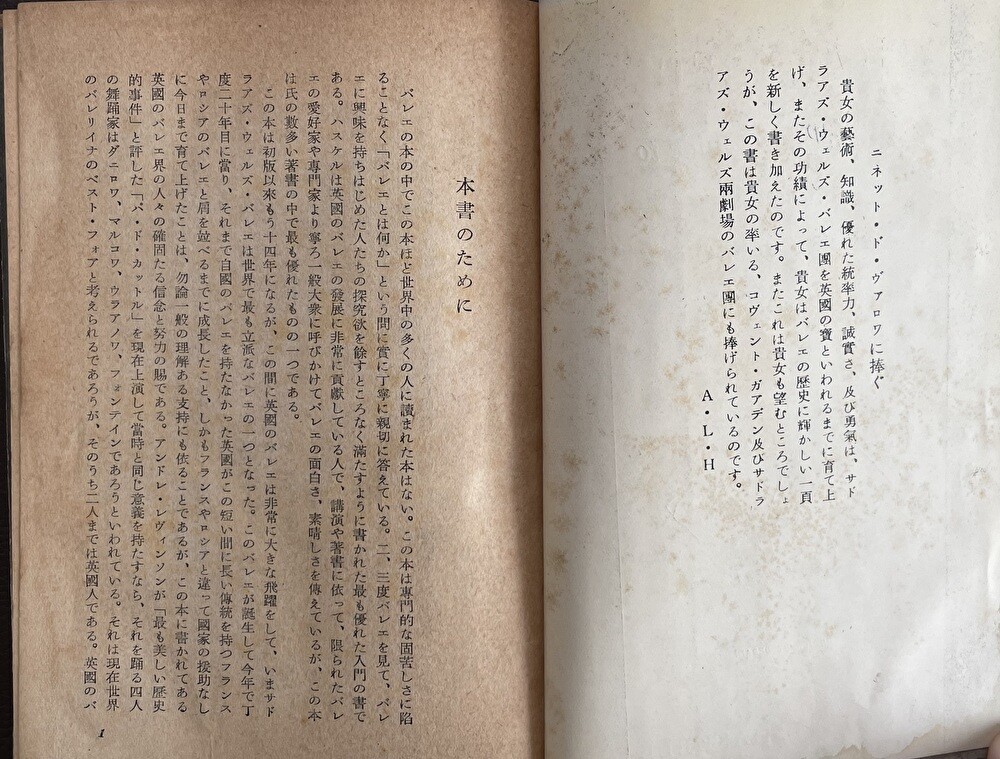 ニネット・ド・ヴァロワに捧ぐ
貴女の藝術、知識、優れた統率力、誠實さ、及び勇氣は、サド
ラアズ・ウェルズ・バレエ團を英國の寶といわれるまでに育て上
げ、またその功績によって、貴女はバレエの歷史に輝かしい一頁
を新しく書き加えたのです。またこれは貴女も望むところでしょ
うが、この書は貴女の率いる、コヴェント・ガアデン及びサドラ
アズ・ウェルズ兩劇場のバレエ團にも捧げられているのです。
A・L・H
本書のために
バレエの本の中でこの本ほど世界中の多くの人に讀まれた本はない。この本は專門的な固苦しさに陷
ることなく「バレエとは何か」という問に實に丁寧に親切に答えている。二、三度バレエを見て、バレ
エに興味を持ちはじめた人たちの探究欲を餘すところなく滿たすように書かれた最も優れた入門の書で
ある。ハスケルは英國のバレエの發展に非常に貢獻している人で、講演や著書に依って、限られたバレ
エの愛好家や專門家より寧ろ一般大衆に呼びかけてバレエの面白さ、素晴しさを傳えているが、この本
は氏の數多い著書の中で最も優れたものの一つである。
この本は初版以來もう十四年になるが、この間に英國のバレエは非常に大きな飛躍をして、いまサド
ラアズ・ウェルズ・バレエは世界で最も立派なバレエの一つとなった。このバレエが誕生して今年で丁
度二十年目に當り、それまで自國のバレエを持たなかった英國がこの短い間に長い傳統を持つフランス
やロシアのバレエと肩を竝べるまでに成長したこと、しかもフランスやロシアと違って國家の援助なし
に今日まで育て上げたことは、勿論一般の理解ある支持にも依ることであるが、この本に書かれてある
英國のバレエ界の人々の確固たる信念と努力の賜である。アンドレ・レヴィンソンが「最も美しい歷史
的事件」と評した「パ・ド・カットル」を現在上演して當時と同じ意義を持たすなら、それを踊る四人
の舞踊家はダニロワ、マルコワ、ウラアノワ、フォンテインであろうといわれている。それは現在世界
のバレリイナのベスト・フォアと考えられるであろうが、そのうち二人までは英國人である。英國のバ
1